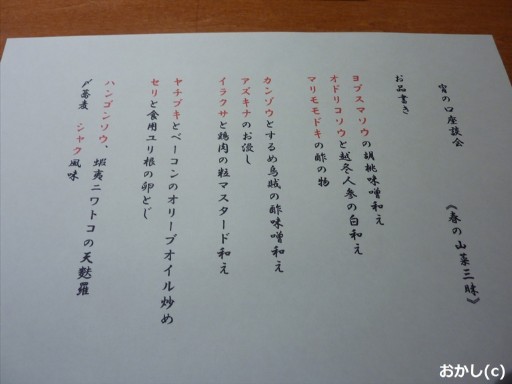 宵の口座談会　《春の山菜三昧》
お品書き
ヨブスマソウの胡桃味噌和え
オドリコソウと越冬人参の白和え
マリモモドキの酢の物
カンゾウとするめ烏賊の酢味噌和え
アズキナのお浸し
イラクサと鶏肉の粒マスタード和え
ヤチブキとベーコンのオリーブオイル炒め
セリと食用ユリ根の卵とじ
ハンゴンソウ、蝦夷ニワトコの天麩羅
〆蕎麦　シャク風味
おかし(c)